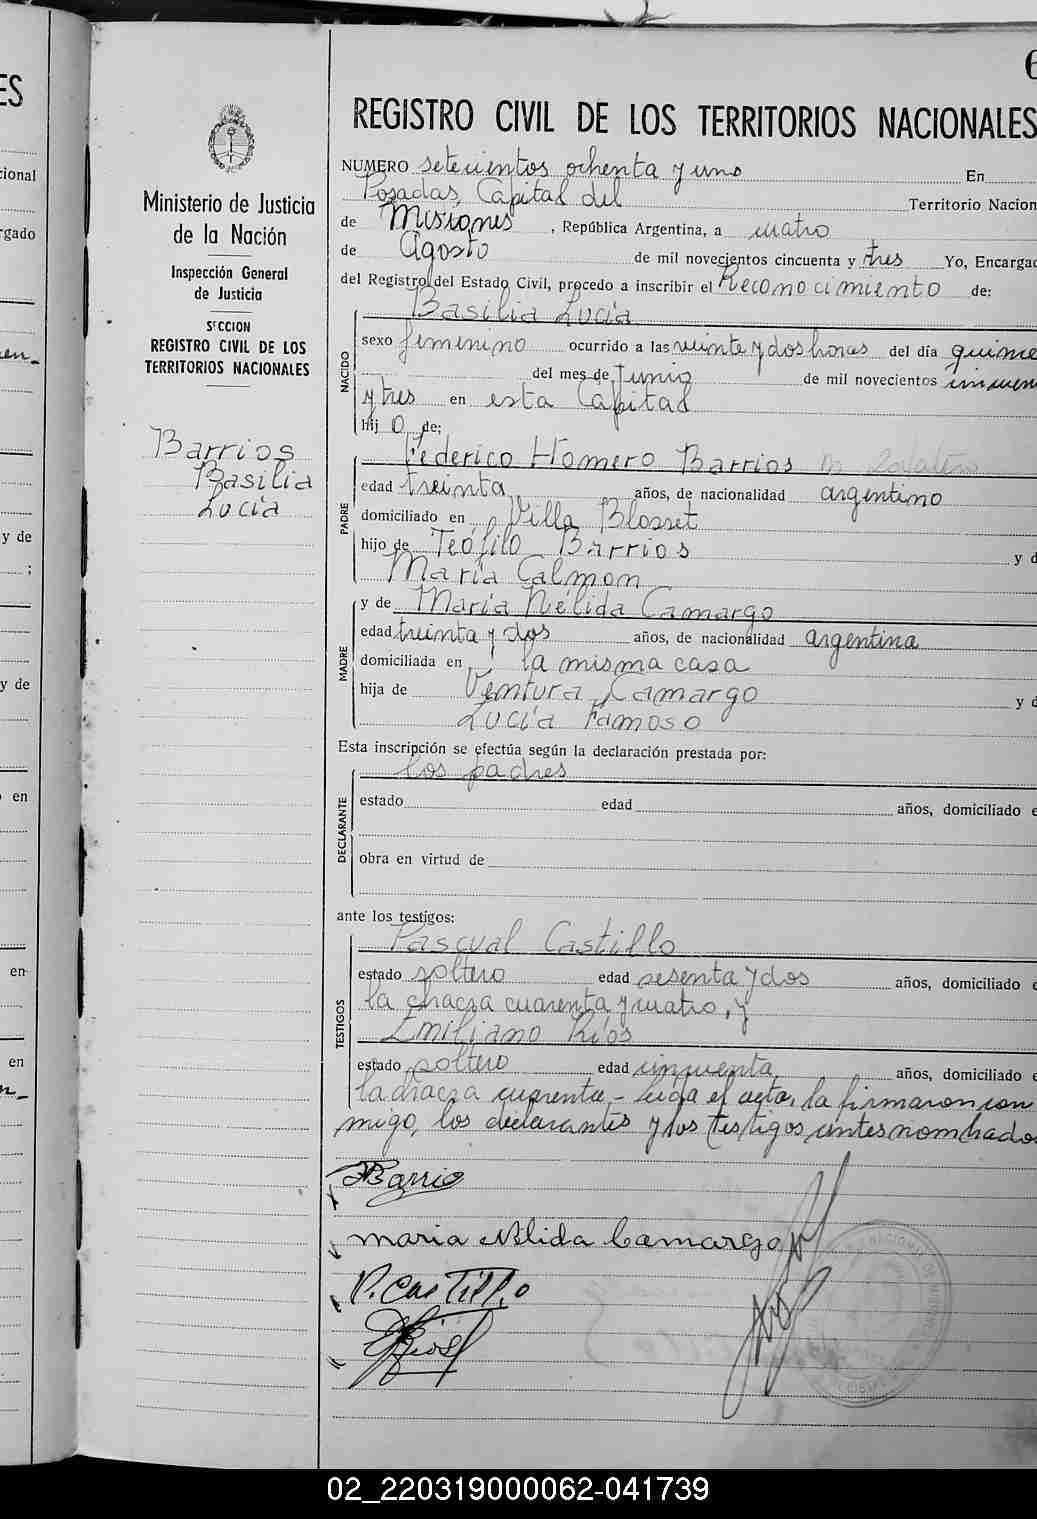 6
REGISTRO CIVIL DE LOS TERRITORIOS NACIONALES
NUMERO setecientos ochenta y uno En
Posadas, Capital del Territorio Nacion
de Misiones, República Argentina, a cuatro
de Agosto de mil novecientos cincuenta y tres Yo, Encargad
del Registro del Estado Civil, procedo a inscribir el Reconocimiento de:
Basilia Lucía
NACIDO
sexo femenino ocurrido a las veinte y dos horas del día quince
del mes de Junio de mil novecientos cincuen
y tres en esta Capital
hij o de:
PADRE
Federico Homero Barrios
edad treinta años, de nacionalidad argentino
domiciliado en Villa Blosset
hijo de Teófilo Barrios y d
María Calmon
MADRE
y de María Nélida Camargo
edad treinta y dos años, de nacionalidad argentina
domiciliada en la misma casa
hija de Ventura Camargo y d
Lucía Famoso
Esta inscripción se efectúa según la declaración prestada por:
los padres
DECLARANTE
estado edad años, domiciliado e
obra en virtud de
ante los testigos:
TESTIGOS
Pascual Castillo
estado soltero edad sesenta y dos años, domiciliado e
la chacra cuarenta y cuatro, y
Emiliano Ríos
estado soltero edad cincuenta años, domiciliado e
la chacra cuarenta - Leída el acta, la firmaron con
migo, los declarantes y los testigos antes nombrados
Barrio
maria Nelida Camargo
P. Castillo
ERios
Ministerio de Justicia
de la Nación
Inspección General
de Justicia
SECCION
REGISTRO CIVIL DE LOS
TERRITORIOS NACIONALES
Barrios
Basilia
Lucía
ES
cional
rgado
en_
y de
;
y de
en
en
en
02_220319000062-041739